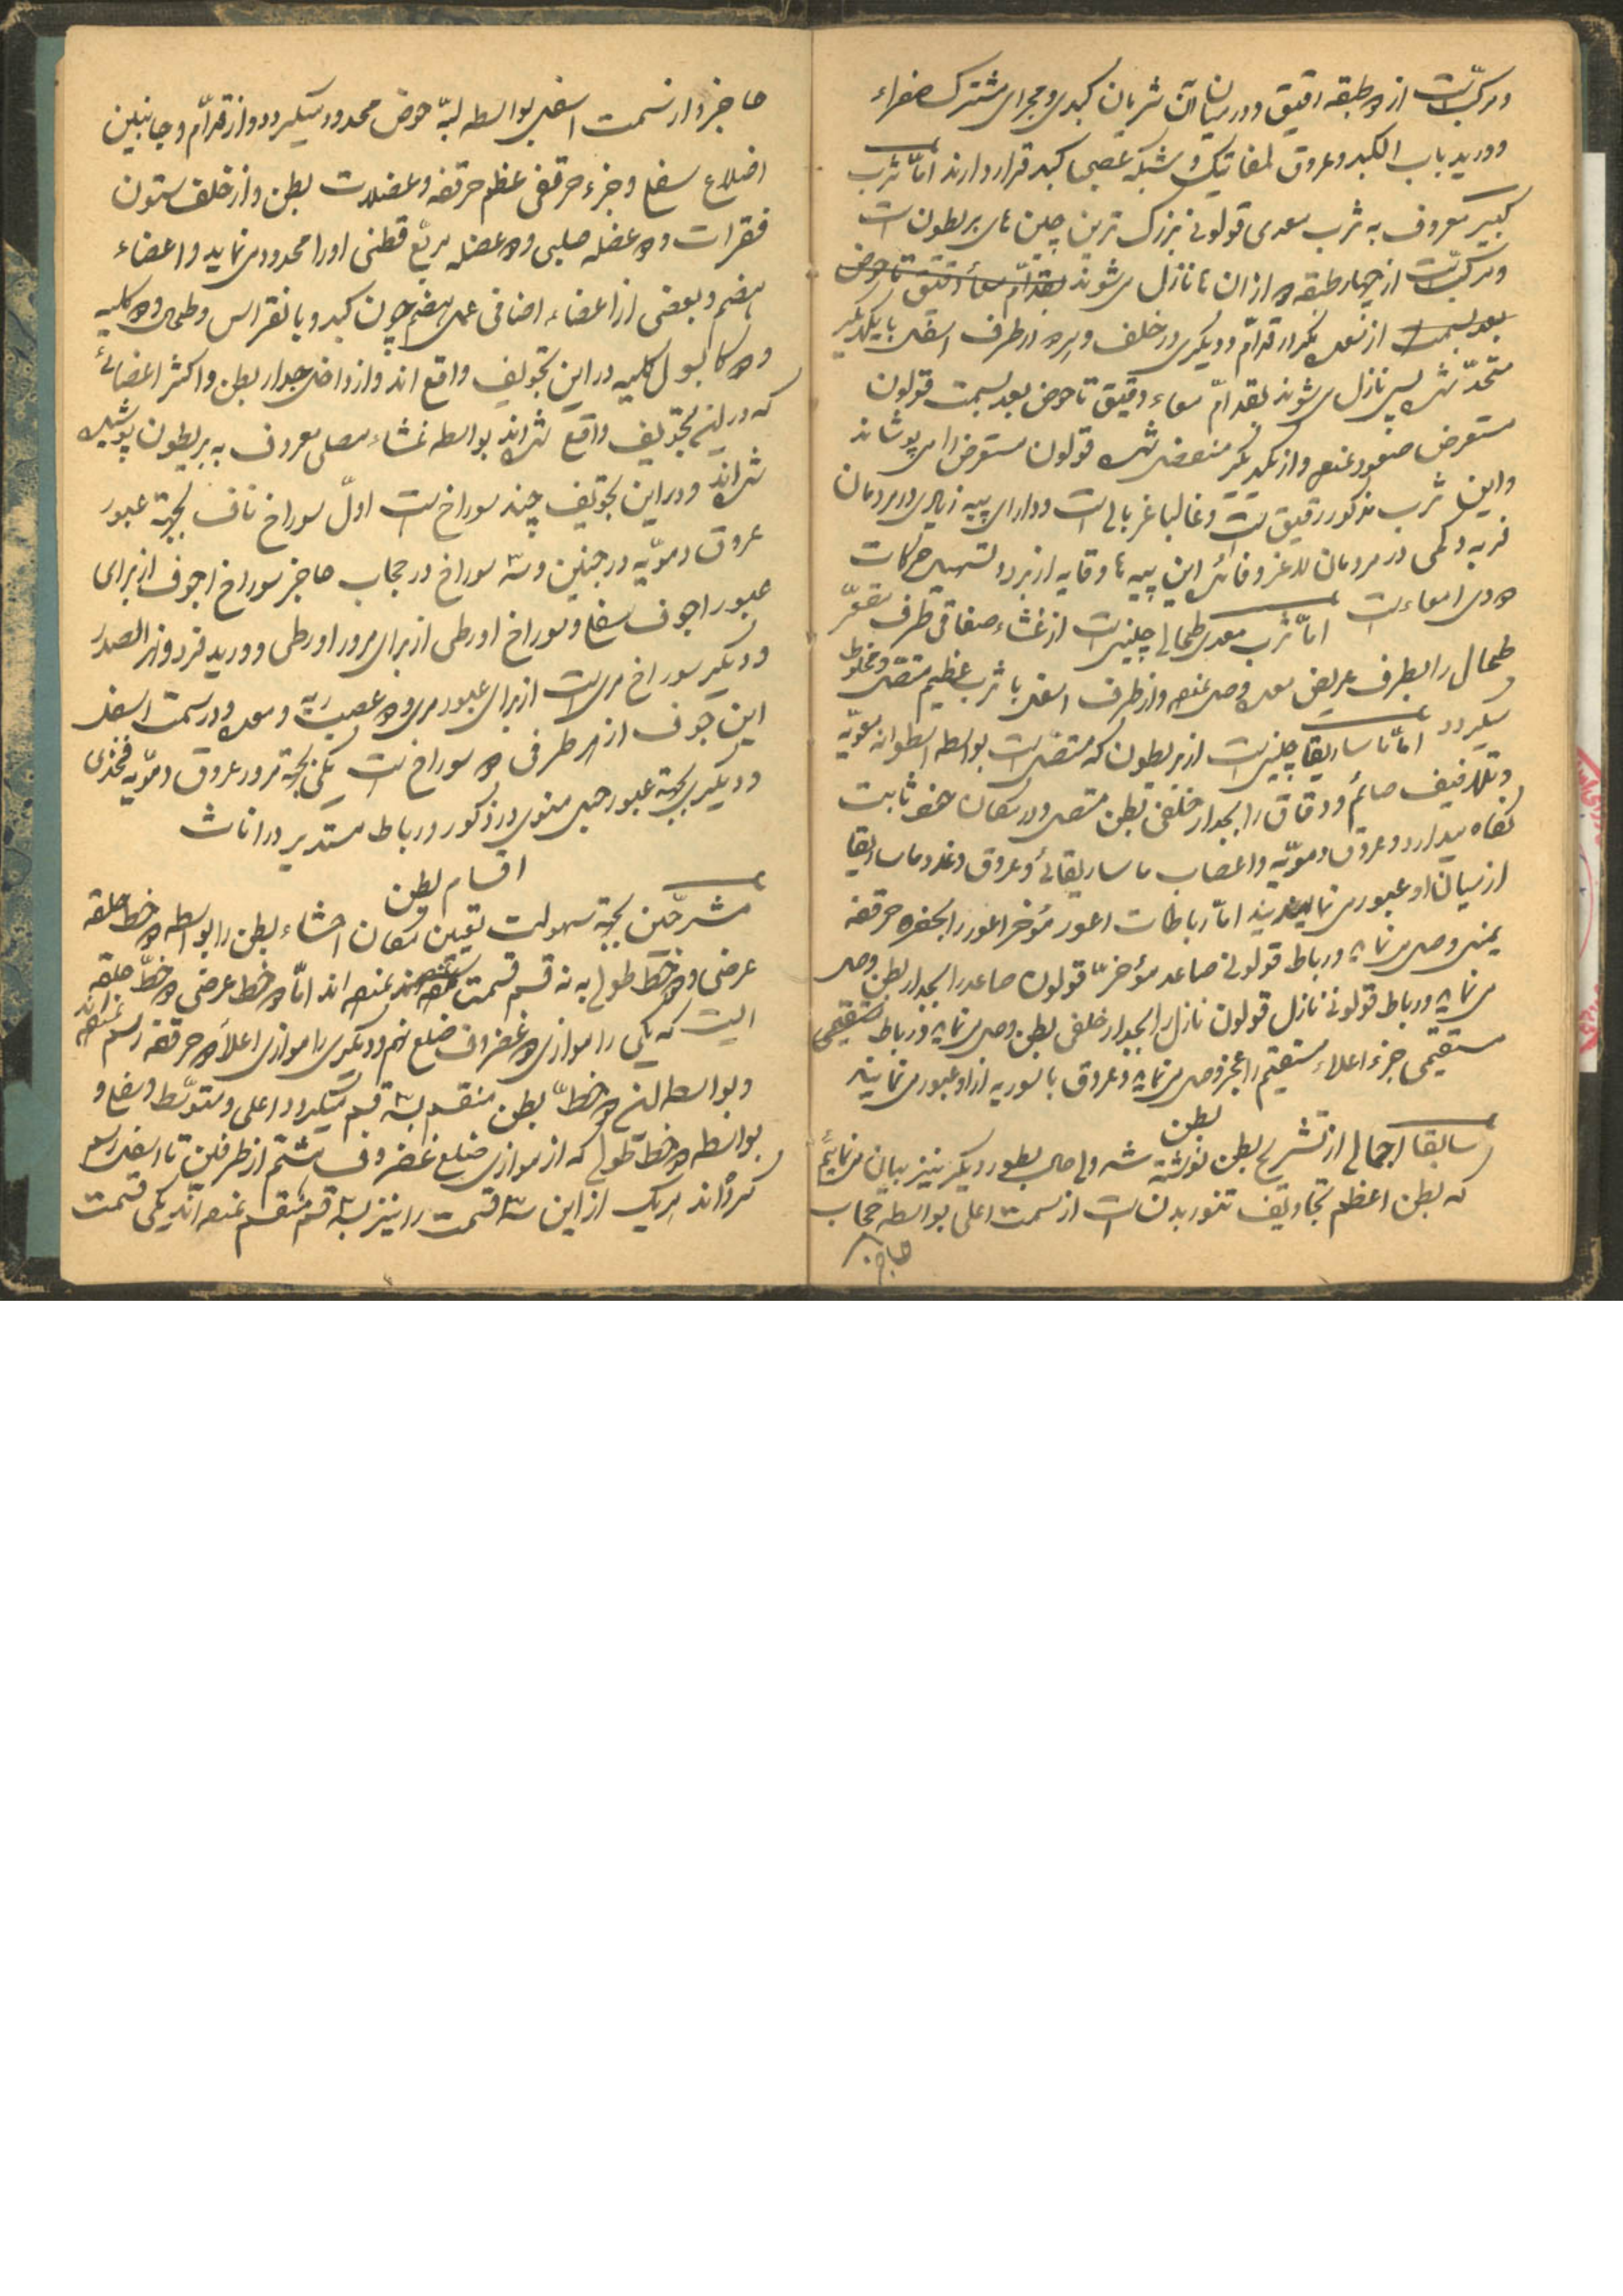 ومرکّبست از دو طبقه رقیق و در میان آن شریان کبدی و مجرای مشترک صفراء
و ورید باب الکبد و عروق لمفاتیک و شبکه عصبی کبد قرار دارند امّا ثرب
کبیر معروف به ثرب معدی قولونی بزرک ترین چین های بریطون است
و مرکّبست از چهار طبقه دو از ان ها نازل می‌شوند بقدّام معاء دقیق تا حوض
بعد بسمت از معده یکی در قدّام و دیکری در خلف و هر دو در طرف اسفل با یکدیگر
متّحد شده پس نازل می‌شوند بقدّام معاء دقیق تا حوض بعد بسمت قولون
مستعرض صعود نموده و از یکدیگر منفصل شده قولون مستعرض را می پوشاند
و این ثرب مذکور رقیق است و غالبا غربالی است و دارای پیه زیادی در مردمان
فربه و کمی در مردمان لاغر و فائده این پیه ها وقایه از برد و تسهیل حرکات
دودی امعاءست امّا ثرب معدی طحالی چینیست از غشاء صفاقی طرف مقعّر
طحال را بطرف عریض معده وصل نموده و از طرف اسفل با ثرب عظیم متصل و مخلوط
میکردد امّا ماساریقا چینیست از بریطون که متصل است بواسطه اسطوانه معویّه
و تلافیف صائم و دقاق را بجدار خلفی بطن متصل و در مکان خود ثابت
نکاه میدارد و عروق دمویّه و اعصاب ماساریقائی و عروق و غدد ماساریقا
از میان او عبور می نمایند امّا رباطات اعور مؤخر اعور را بحفره حرقفه
یمنی وصل می نماید و رباط قولونی صاعد مؤخر قولون صاعد را بجدار بطن وصل
می نماید و رباط قولونی نازل قولون نازل را بجدار خلفی بطن وصل می نماید و رباط
مستقیمی جزء اعلاء مستقیم را بعجز وصل می نماید و عروق باسوریه از او عبور می نمایند
بطن
سابقا اجمالی از تشریح بطن نوشته شد ولی حال بطور دیکر نیز بیان می نمائیم
که بطن اعظم تجاویف تنور بدن است از سمت اعلی بواسطه حجاب
حاجز
حاجز و از سمت اسفل بواسطه لبّه حوض محدود میکردد و از قدّام و جانبین
اضلاع سفلی و جزء حرقفی عظم حرقفه و عضلات بطن و از خلف ستون
فقرات و دو عضله صلبی و دو عضله مربّع قطنی او را محدود می نماید و اعضاء
هضم و بعضی از اعضاء اضافی عمل هضم چون کبد و بانقراس و طحال و دو کلیه
و دو کابولی کلیه در این تجویف واقع اند و از داخل جدار بطن و اکثر اعضائی
که در این تجویف واقع شده اند بواسطه غشاء مصلی معروف به بریطون پوشیده
شده اند و در این تجویف چند سوراخ است اوّل سوراخ ناف بجهة عبور
عروق دمویّه در جنین و سه سوراخ در حجاب حاجز سوراخ اجوف از برای
عبور اجوف سفلی و سوراخ اورطی از برای مرور اورطی و ورید فرد و قناة الصدر
و دیکر سوراخ مریست از برای عبور مری و دو عصب ریه و معده و در سمت اسفل
این جوف از هر طرفی دو سوراخ است یکی بجهة مرور عروق دمویّه فخذی
و دیکری بجهة عبور حبل منوی در ذکور و رباط مستدیر در اناث
اقسام بطن
مشرّحین بجهة سهولت تعیین مکان احشاء بطن را بواسطه دو خط حلقه
عرضی و دو خط طولی به نه قسم قسمت نموده اند امّا دو خط عرضی دو خطّ حلقه
ایست که یکی را موازی دو غضروف ضلع نهم و دیکری را موازی اعلاء دو حرقفه رسم نموده اند
و بواسطه این دو خطّ بطن منقسم بسه قسم میکردد اعلی و متوسّط و سفلی و
بواسطه دو خط طولی که از موازی ضلع غضروف هشتم از طرفین تا اسفل رسم
کرده اند هریک از این سه قسمت را نیز بسه قسم منقسم نموده اند یکی قسمت